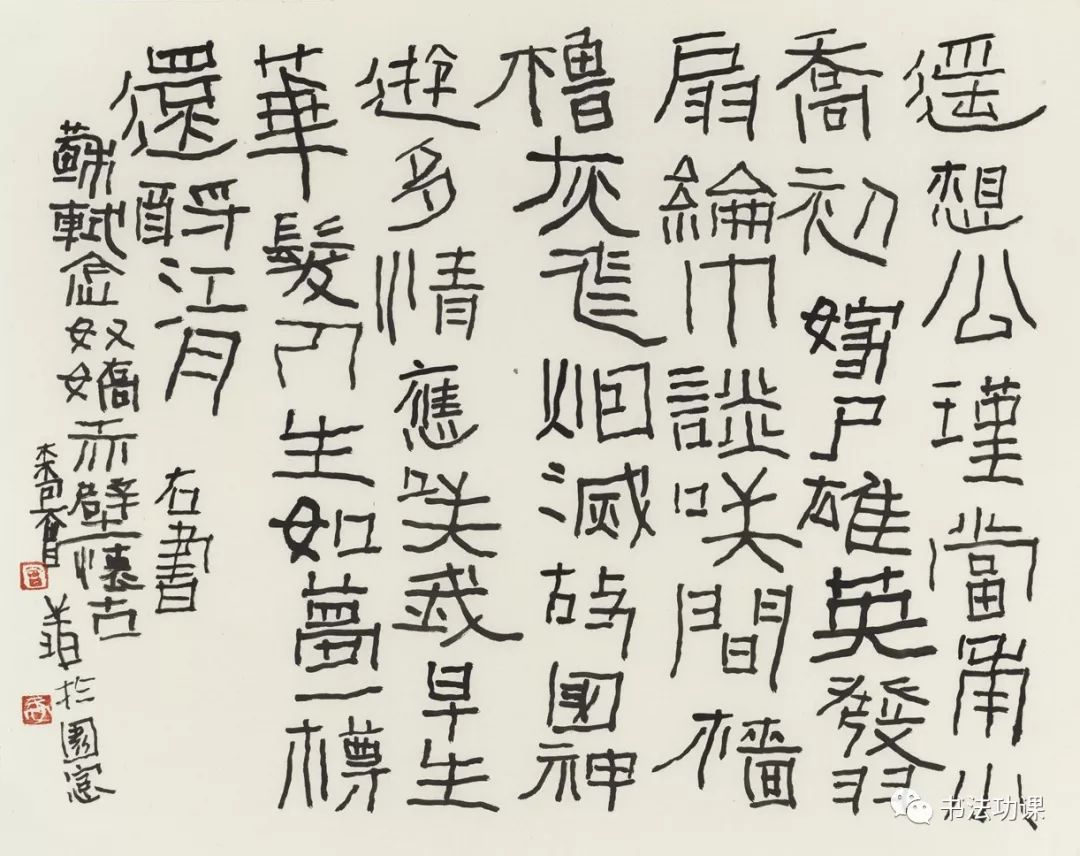 遥想公瑾當年小
喬初嫁了雄英發羽
扇綸巾談咲間檣
櫓灰飛烟滅故國神
遊多情應咲我早生
華髮人生如夢一樽
還酹江月
右書
蘇軾念奴嬌赤壁懷古
书法功课